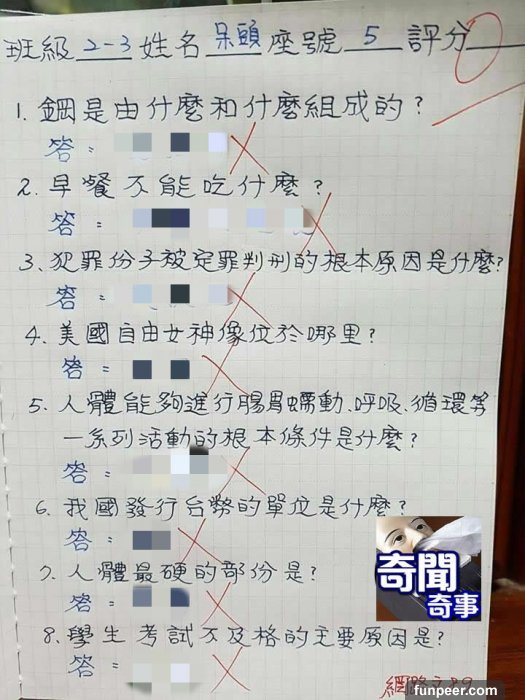 班級2-3姓名呆頭座號5評分0
1.鋼是由什麼和什麼組成的?
答:
2.早餐不能吃什麼?
答:
3、犯罪份子被定罪判刑的根本原因是什麼?
答:
4、美國自由女神像位於哪里?
答:
5、人體能夠進行腸胃蠕動、呼吸、循環等
一系列活動的根本條件是什麼?
答:
6、我國發行台幣的單位是什麼?
答:
7、人體最硬的部份是?
答:
8、學生考試不及格的主要原因是?
答:
奇聞
奇事
funpeer.com